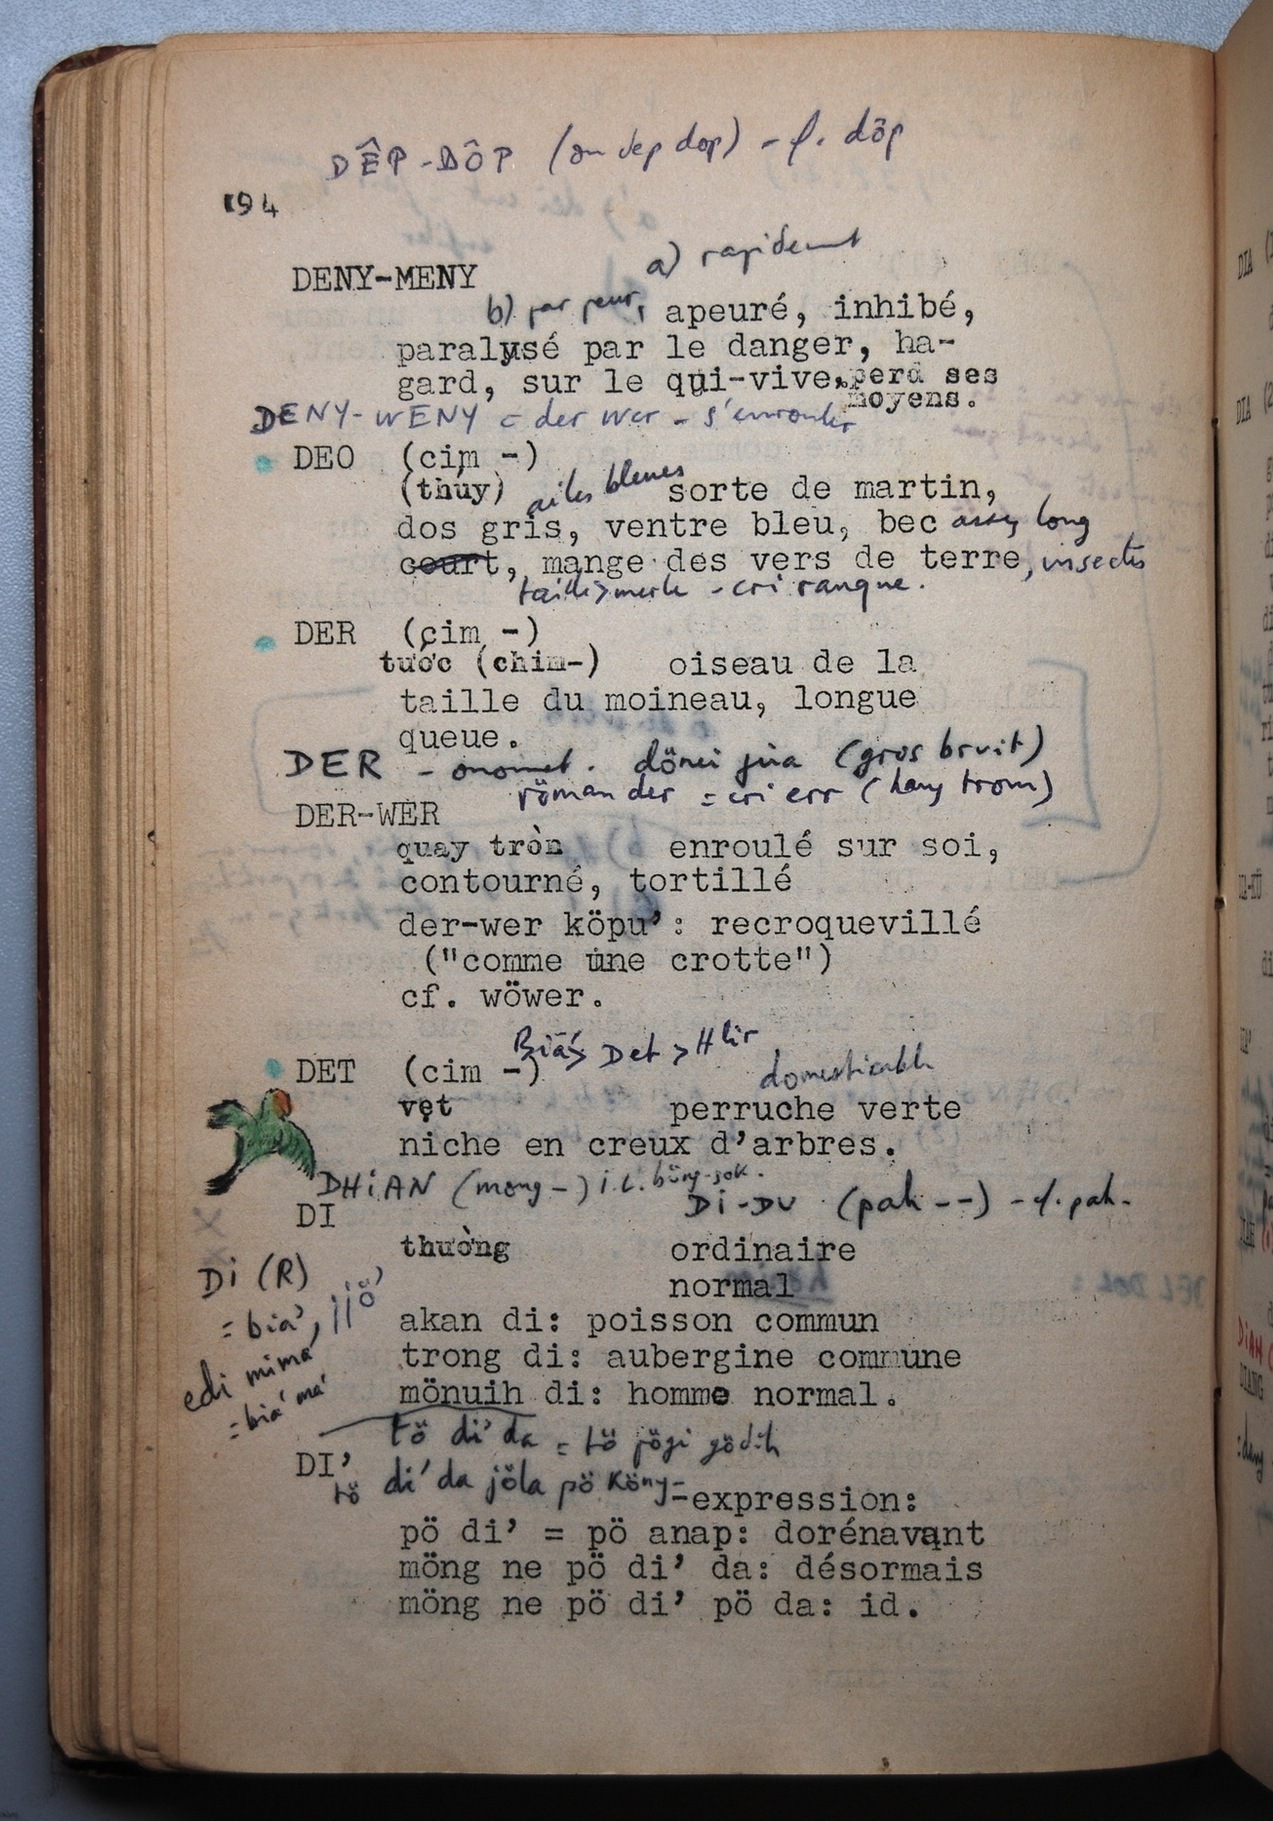 DÊP-DÔP (an dep dop) - f. dôp
194
a) rapidement
DENY-MENY
b) par peur, apeuré, inhibé,
paralysé par le danger, ha-
gard, sur le qui-vive, perd ses
moyens.
DENY-WENY = der wer - s'enrouler
DEO (cim -)
(thúy) ailes bleues sorte de martin,
dos gris, ventre bleu, bec assez long
court, mange des vers de terre, insectes
taille > merle - cri rauque.
DER (cim -)
tước (chim-) oiseau de la
taille du moineau, longue
queue.
DER - onomat. (gros bruit)
röman der = cri err
DER-WER
quay tròn enroulé sur soi,
contourné, tortillé
der-wer köpu’: recroquevillé
("comme une crotte")
cf. wöwer.
Det > Hlir
DET (cim -) domesticable
vẹt perruche verte
niche en creux d’arbres.
DHIAN (mong -)
DI-DU (pah --) - f. pah-
DI
thường ordinaire
normal
DI (R)
= bia’,
akan di: poisson commun
trong di: aubergine commune
edi mima
= bia’ ma’
mönuih di: homme normal.
tö di’ da = tö
DI’
tö di’ da jöla pö köny
-expression:
pö di’ = pö anap: dorénavant
möng ne pö di’ da: désormais
möng ne pö di’ pö da: id.